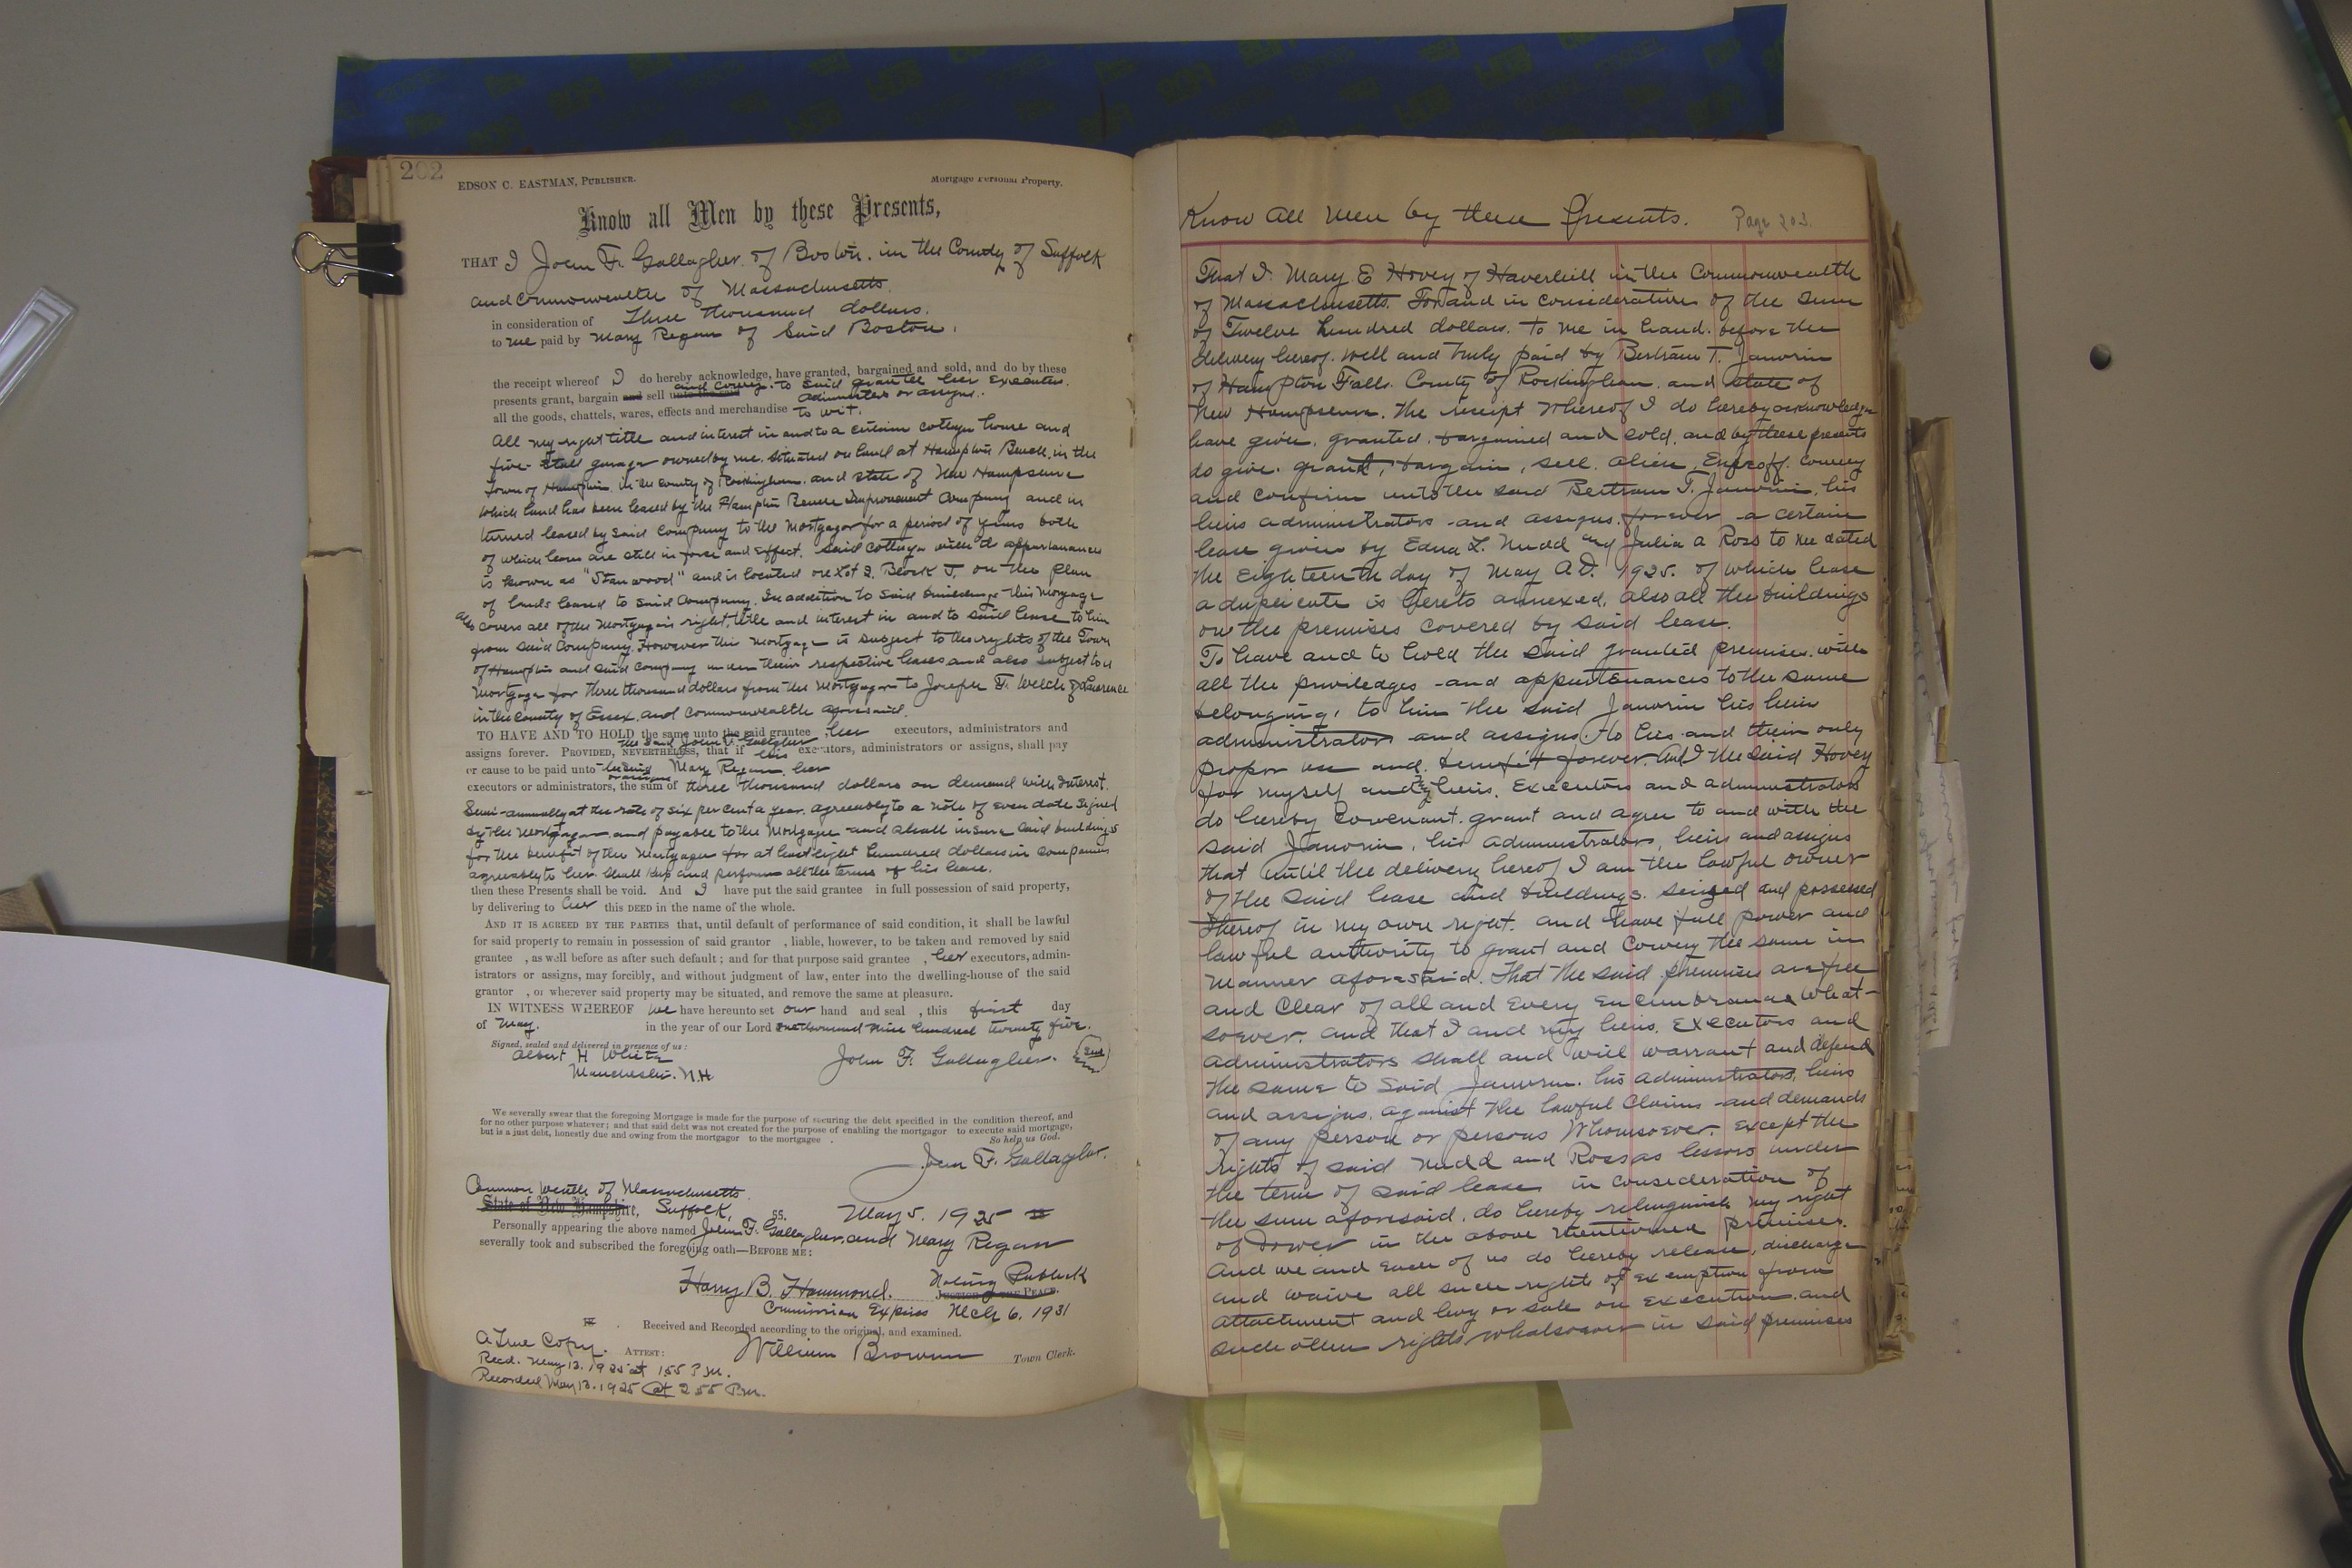 202
EDSON C. EASTMAN, PUBLISHER.
Mortgage Personal Property.
Know all Men by these Presents,
THAT I John F. Gallagher of Boston. in the County of Suffolk
and Commonwealth of Massachusetts.
in consideration of Three thousand dollars.
to me paid by Mary Regan of Said Boston.
the receipt whereof I do hereby acknowledge, have granted, bargained and sold, and do by these
and convey. to said grantee her Executors.
presents grant, bargain and sell unto the said administers or assigns.
all the goods, chattels, wares, effects and merchandise to wit.
All my right title and interest in and to a certain cottage house and
five-stall garage owned by me. situated on land at Hampton Beach. in the
town of Hampton. in the County of Rockingham. and state of New Hampshire
which land has been leased by the Hampton Beach Improvement Company and in
turned leased by said Company to the Mortgagor for a period of years both
of which leases are still in force and effect. Said cottage with it appurtenances
is known as "Stanwood" and is located on Lot 2. Block J. on the plan
of lands leased to said Company. In addition to said buildings this Mortgage
also covers all of the Mortgagors right, title and interest in and to said lease to him
from said Company. However this mortgage is subject to the rights of the Town
of Hampton and said Company under their respective leases and also subject to a
Mortgage for three thousand dollars from the Mortgagor to Joseph F. Welch of Lawrence
in the County of Essex. and Commonwealth aforesaid.
TO HAVE AND TO HOLD the same unto the said grantee , her executors, administrators and
the said John F. Gallagher
assigns forever. PROVIDED, NEVERTHELESS, that if his executors, administrators or assigns, shall pay
or cause to be paid unto the said Mary Regan her
or assigns
executors or administrators, the sum of three thousand dollars on demand with interest.
Semi-annually at the rate of six per cent a year. agreeably to a note of even date signed
by the Mortgagor and payable to the Mortgagee and shall insure said buildings
for the benefit of the Mortgagee for at least eight hundred dollars in companies
agreeably to her. Shall keep and perform all the terms of his lease.
then these Presents shall be void. And I have put the said grantee in full possession of said property,
by delivering to her this DEED in the name of the whole.
AND IT IS AGREED BY THE PARTIES that, until default of performance of said condition, it shall be lawful
for said property to remain in possession of said grantor , liable, however, to be taken and removed by said
grantee , as well before as after such default ; and for that purpose said grantee , her executors, admin-
istrators or assigns, may forcibly, and without judgment of law, enter into the dwelling-house of the said
grantor , or wherever said property may be situated, and remove the same at pleasure.
IN WITNESS WHEREOF we have hereunto set our hand and seal , this first day
of May. in the year of our Lord one thousand nine hundred twenty five.
Signed, sealed and delivered in presence of us :
Albert H White
Manchester. N.H
John F. Gallagher. (Seal)
We severally swear that the foregoing Mortgage is made for the purpose of securing the debt specified in the condition thereof, and
for no other purpose whatever ; and that said debt was not created for the purpose of enabling the mortgagor to execute said mortgage,
but is a just debt, honestly due and owing from the mortgagor to the mortgagee . So help us God.
John F. Gallagher.
Common wealth of Massachusetts
State of New Hampshire, Suffolk, ss. May 5. 1925
Personally appearing the above named John F. Gallagher, and Mary Regan
severally took and subscribed the foregoing oath—BEFORE ME :
Harry B. Hammond. Notary Publick
JUSTICE OF THE PEACE.
Commission Expires Mch 6. 1931
Received and Recorded according to the original, and examined.
A True Copy. ATTEST : William Brown Town Clerk.
Recd. May 13. 1925 at 1 55 P.M.
Recorded May 13. 1925 at 2 55 P.M.
Know All Men by these Presents. Page 203.
That I. Mary E Hovey of Haverhill in the Commonwealth
of Massachusetts. For and in consideration of the sum
of Twelve hundred dollars. to me in hand. before the
delivery hereof. well and truly paid by Bertram T. Janvrin
of Hampton Falls. County of Rockingham. and state of
New Hampshire. the receipt whereof I do hereby acknowledge
have given. granted. bargained and sold. and by these presents
do give. grant, bargain, sell. alien, Enfeoff. Convey
and confirm unto the said Bertram T. Janvrin, his
heirs administrators and assigns. forever a certain
lease given by Edna L. Nudd and Julia A Ross to me dated
the Eighteenth day of May A.D. 1925. of which lease
a duplicate is hereto annexed, also all the buildings
on the premises covered by said lease.
To have and to hold the said granted premises. with
all the priviledges and appurtenances to the same
belonging, to him the said Janvrin his heirs
administrators and assigns. to his and their only
proper use and. benefit forever. And I the said Hovey
for myself and my heirs. Executors and administrators
do hereby covenant. grant and agree to and with the
said Janvrin, his administrators, heirs and assigns
that until the delivery hereof I am the lawful owner
of the said lease and buildings. seized and possessed
thereof in my own right. and have full power and
lawful authority to grant and convey the same in
Manner aforesaid. That the said premises are free
and Clear of all and Every encumbrance What-
soever. and that I and my heirs. Executors and
administrators shall and will warrant and defend
the same to said Janvrin. his administrators, heirs
and assigns. against the lawful Claims and demands
of any person or persons Whomsoever. except the
rights of said Nudd and Ross as lessors under
the term of said lease in consideration of
the sum aforesaid. do hereby relinquish my right
of Dower in the above mentioned premises.
And we and each of us do hereby release, discharge
and waive all such rights of exemption from
attachment and levy or sale on execution. and
such other rights whatsoever in said premises